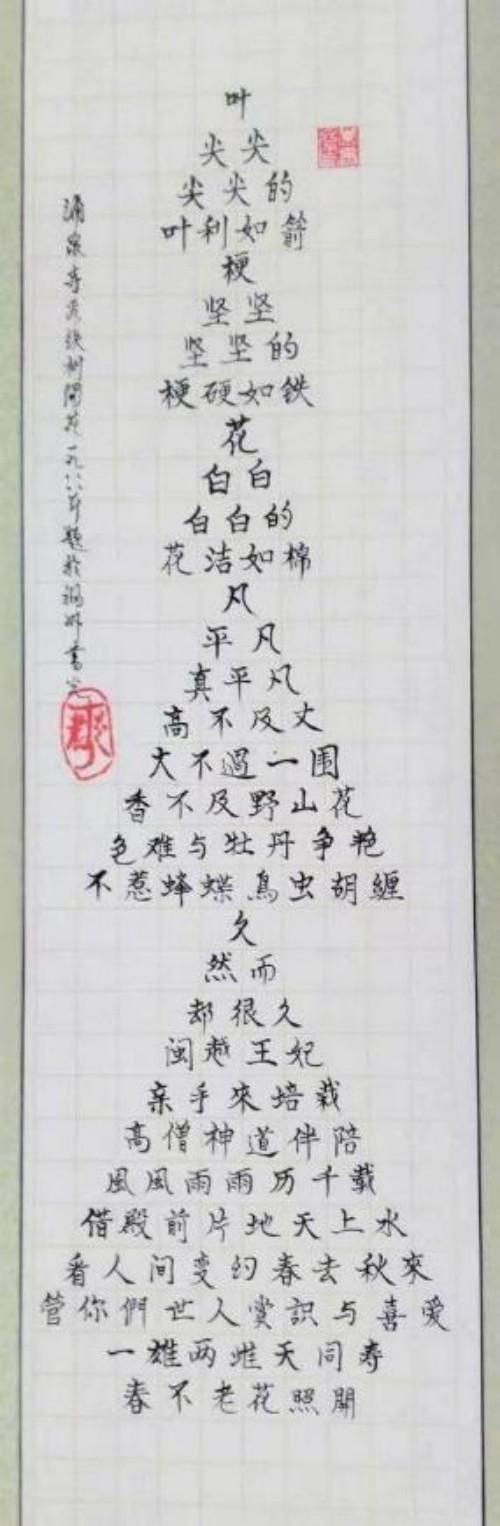 叶
尖尖
尖尖的
叶利如箭
梗
坚坚
坚坚的
梗硬如铁
花
白白
白白的
花洁如棉
凡
平凡
真平凡
高不及丈
大不過一围
香不及野山花
色难与牡丹争艳
不惹蜂蝶鳥虫胡纏
久
然而
却很久
闽越王妃
亲手來培栽
高僧神道伴陪
風風雨雨历千載
借殿前片地天上水
看人间变幻春去秋來
管你們世人赏識与喜爱
一雄两雌天同寿
春不老花照開
涌泉寺观铁树開花一九八八年題於福州書